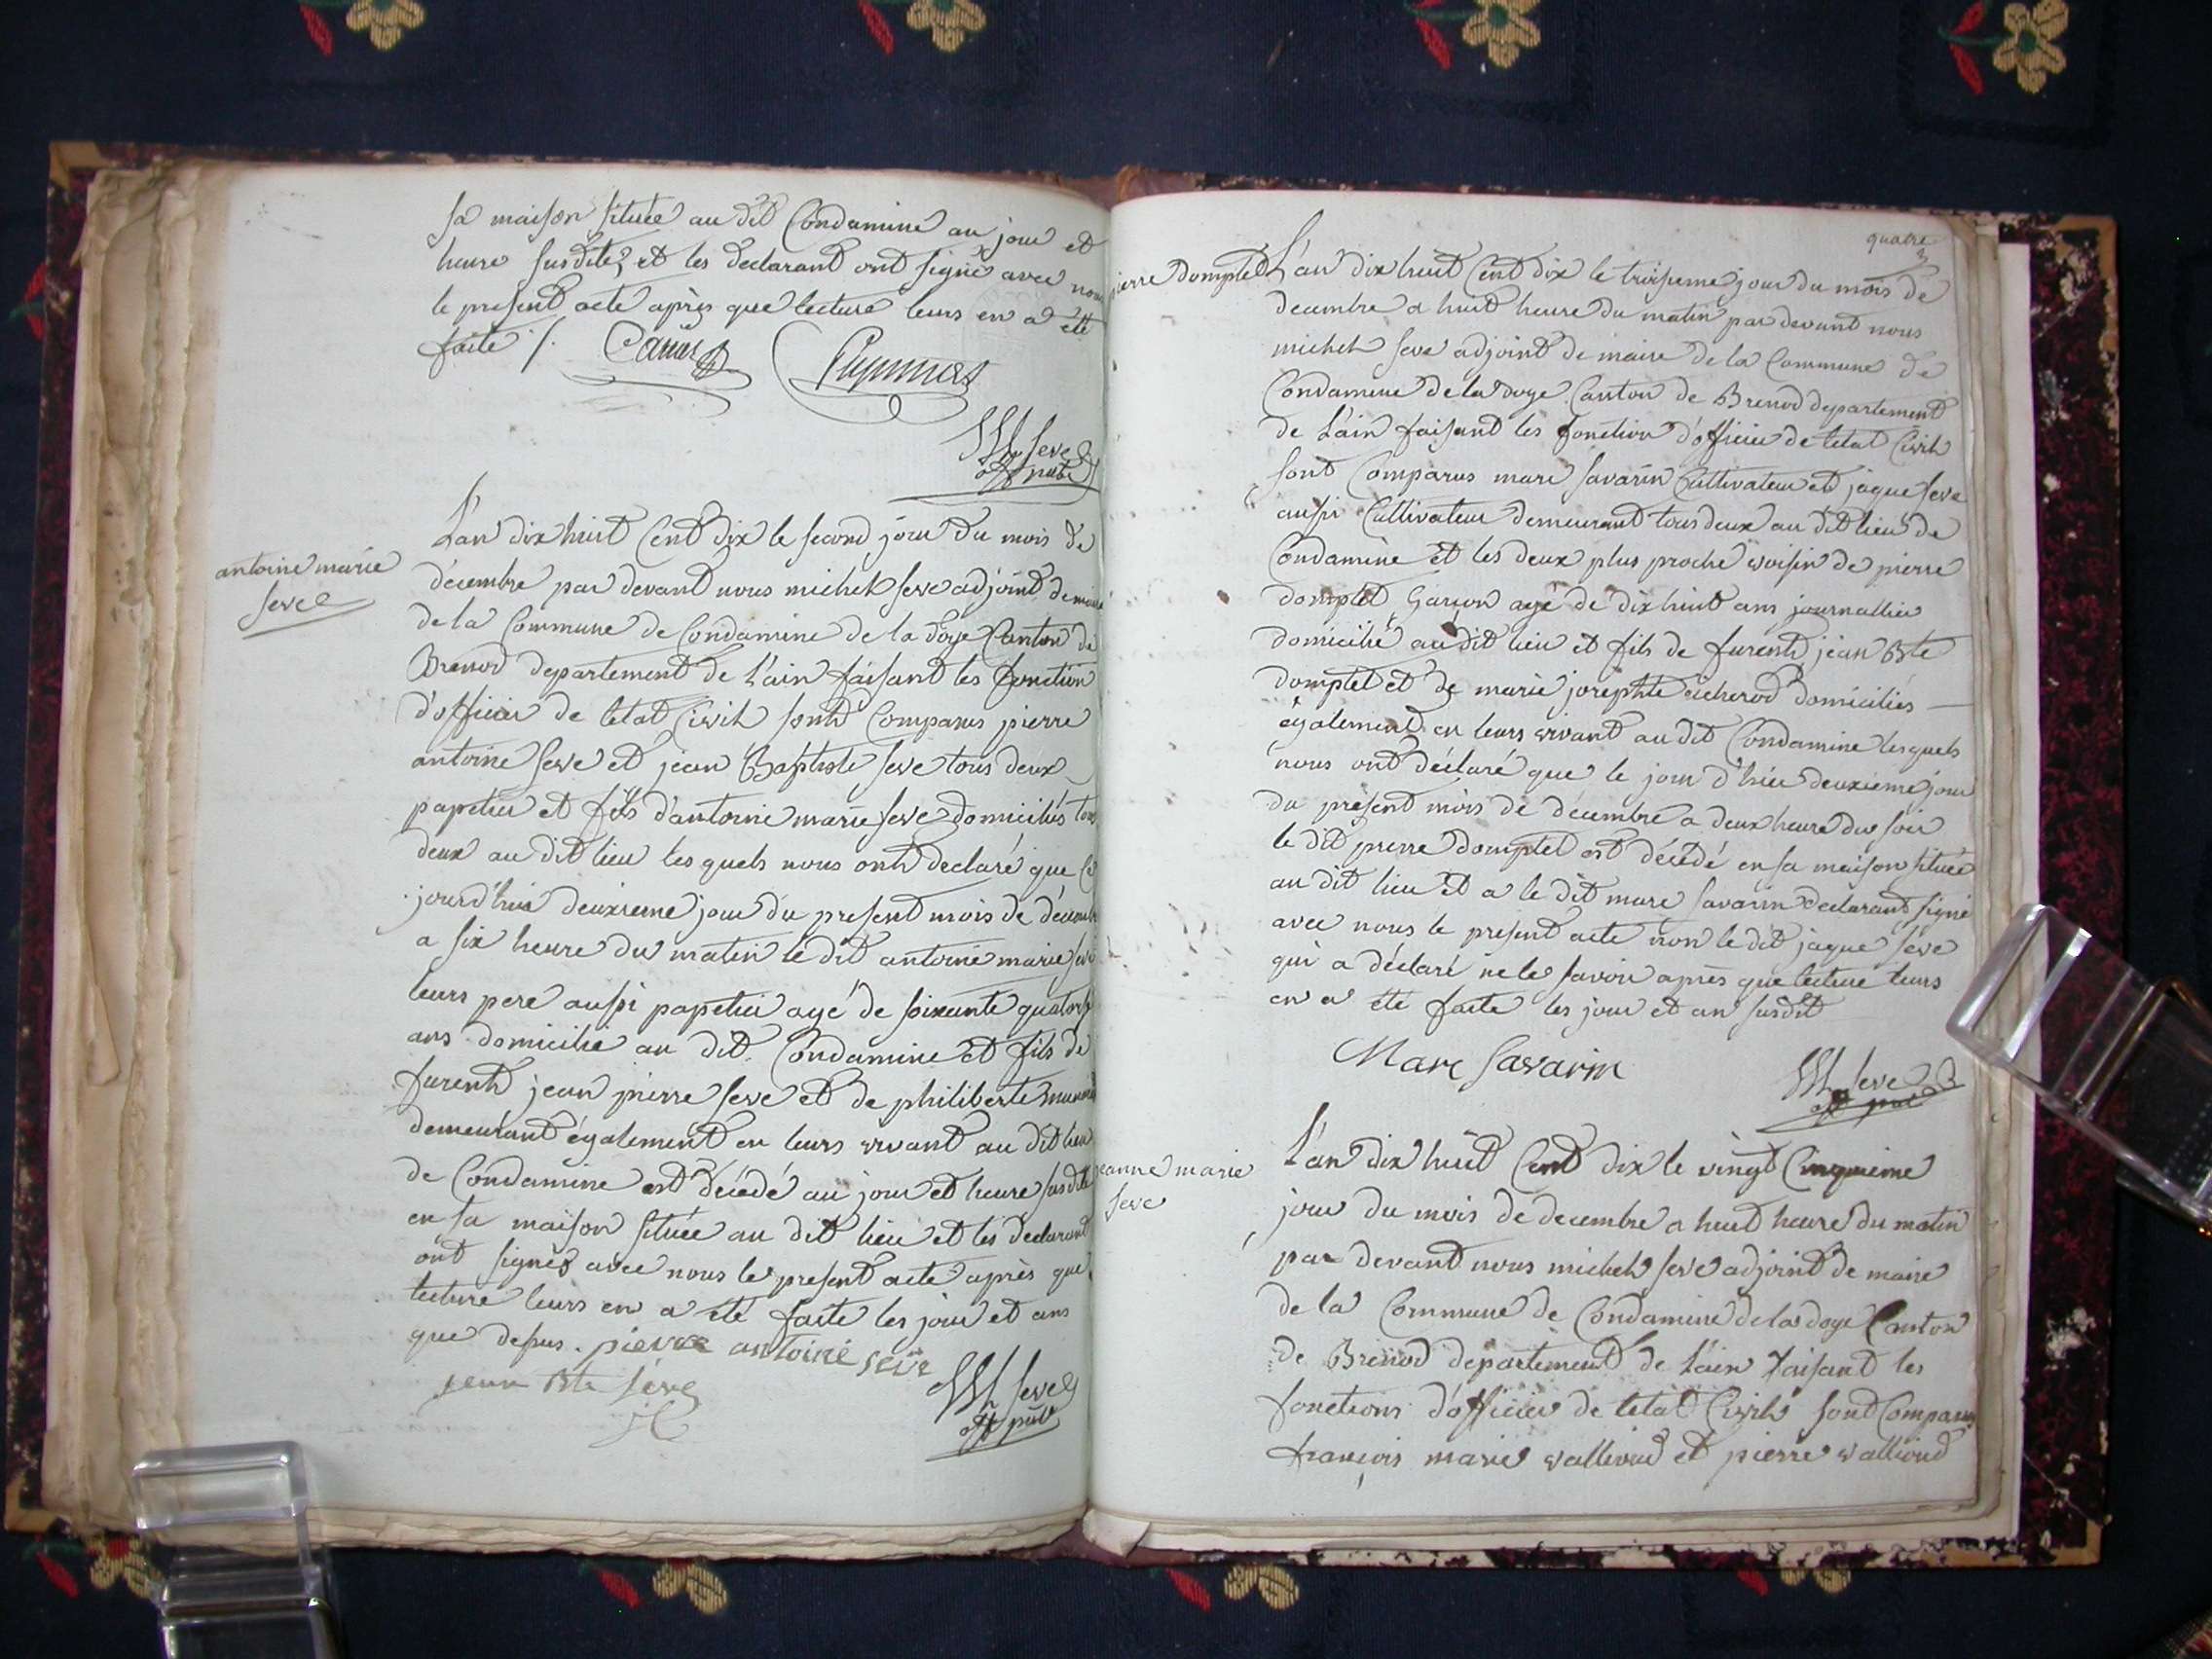 sa maison située au dit Condamine au jour et
heure susdites, et les declarant ont signé avec nous
le present acte après que lecture leurs en a eté
faite /.
M Seve
off pub
antoine marie
seve
L'an dix huit Cent dix le second jour du mois de
décembre par devant nous michel seve adjoint de maire
de la Commune de Condamine de la doye Canton de
Brenod departement de L'ain faisant les fonction
d'officier de letat Civil sont Comparus pierre
antoine seve et jean Baptiste seve tous deux
papetier et fils d'antoine marie seve domiciliés tous
deux au dit lieu les quels nous ont declaré que Ce
jourd'hui deuxieme jour du present mois de décembre
a six heure du matin le dit antoine marie seve
leurs pere aussi papetier agé de soixante quatorze
ans domicilié au dit Condamine et fils de
furent jean pierre seve et de philiberte
demeurant également en leurs vivant au dit lieu
de Condamine est décédé au jour et heure susdite
en sa maison située au dit lieu et les declarant
ont signés avec nous le present acte après que
lecture leurs en a été faite les jour et ans
que dessus. pierre antoine seve
jean Bte séve
M seve
off pub
quatre
3
pierre domptet
L'an dix huit Cent dix le troisieme jour du mois de
decembre a huit heure du matin par devant nous
michel seve adjoint de maire de la Commune de
Condamine de la doye Canton de Brenod departement
de L'ain faisant les fonction d'officier de letat Civil
sont Comparus marc savarin Cultivateur et jaque seve
aussi Cultivateur demeurant tous deux au dit lieu de
Condamine et les deux plus proche voisin de pierre
domptet Garçon agé de dix huit ans journallier
domicilié au dit lieu et fils de furent jean Bte
domptet et de marie josephte domiciliés
également en leurs vivant au dit Condamine lesquels
nous ont déclaré que le jour d'hier deuxieme jour
du présent mois de décembre a deux heure du soir
le dit pierre domptet est décédé en sa maison située
au dit lieu et a le dit marc savarin déclarant signé
avec nous le présent acte non le dit jaque seve
qui a déclaré ne le savoir après que lecture leurs
en a été faite les jour et an susdit
Marc Savarin
M seve
off pub
jeanne marie
seve
L'an dix huit Cent dix le vingt Cinquieme
jour du mois de decembre a huit heure du matin
par devant nous michel seve adjoint de maire
de la Commune de Condamine de la doye Canton
de Brenod departement de L'ain faisant les
fonctions d'officier de letat Civil sont Comparus
françois marie vallioud et pierre vallioud